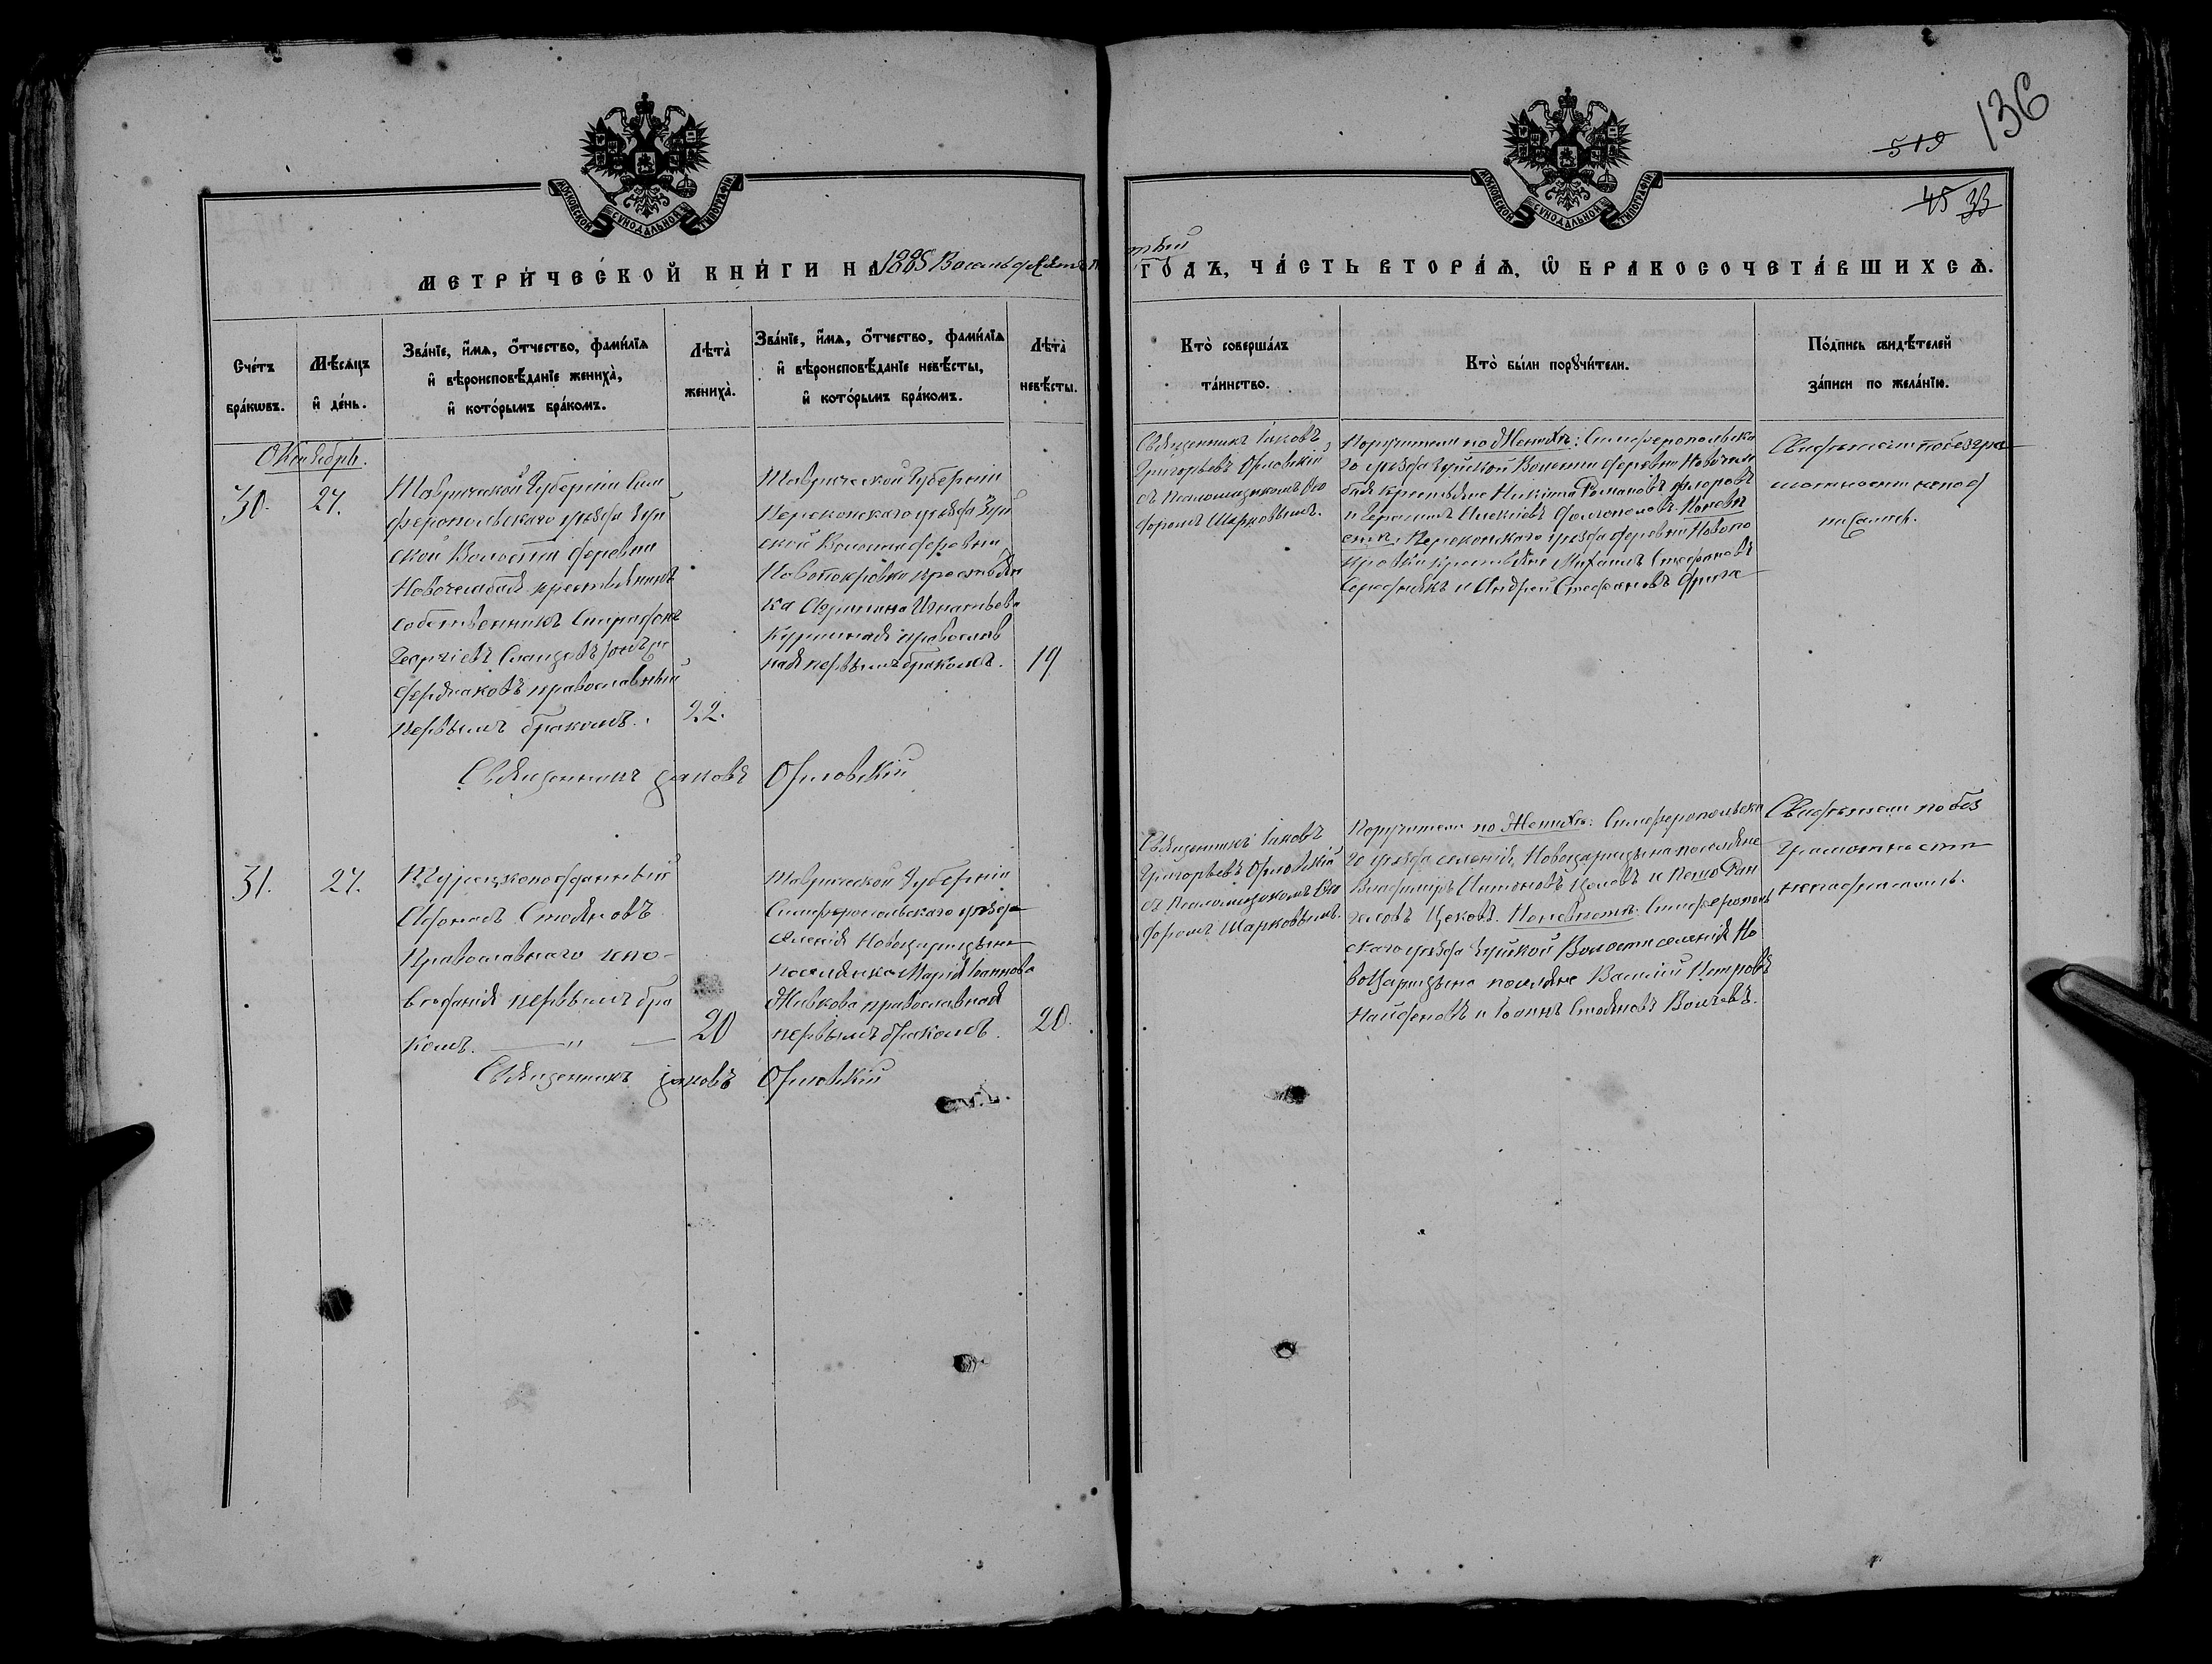 136
519
45 33
МОСКОВСКОЙ СѴНОДАЛЬНОЙ ТИПОГРАФІИ
МОСКОВСКОЙ СѴНОДАЛЬНОЙ ТИПОГРАФІИ
МЕТРИ́ЧЕСКОЙ КНИ́ГИ НА 1885
ГО́ДЪ, ЧА́СТЬ ВТОРА́Ѧ, Ѡ БРАКОСОЧЕТА́ВШИХСѦ.
Сче́тъ
бра́кѡвъ.
Мѣ́сѧцъ
и҆ де́нь.
Зва́нїе, и҆́мѧ, ѻ҆́тчество, фами́лїѧ
и҆ вѣроисповѣ́данїе жениха̀,
и҆ кото́рымъ бра́комъ.
Лѣта̀
жениха̀.
Зва́нїе, и҆́мѧ, ѻ҆́тчество, фами́лїѧ
и҆ вѣроисповѣ́данїе невѣ́сты,
и҆ кото́рымъ бра́комъ.
Лѣта̀
невѣ́сты.
Кто̀ соверша́лъ
та́инство.
Кто̀ бы́ли порꙋчи́тели.
По́дпись свидѣ́телей
за́писи по жела́нїю.
Октябрь.
30.
27.
Таврической Губерніи Сим
феропольскаго уѣзда Зуй
ской Волости деревни
собственникъ Спиридонъ
Георгіевъ
православный
первымъ бракомъ.
22.
Таврической Губерніи
Перекопскаго уѣзда Зуй
ской Волости деревни
Новопокровки крестьян
ка Игнатьева
православ
ная первымъ бракомъ.
19
Священникъ Іаковъ
Григорьевъ Орловскій
съ Псаломщикомъ Ѳео
доромъ Шарковымъ.
Поручители по Женихѣ: Симферопольска
го уѣзда Зуйской Волости деревни
крестьяне Никита Романовъ
По невѣ
стѣ, Перекопскаго уѣзда деревни Новопо
кровки крестьяне Михаилъ Стефановъ
и Андрей Стефановъ
Свидѣтели по безгра
мотности непод
писались.
Священникъ Іаковъ Орловскій
31.
27.
Турецкоподданный
Стояновъ
Православнаго испо-
вѣданія первымъ бра
комъ.
20
Таврической Губерніи
Симферопольскаго уѣзда
селенія Новоцарицына
поселянка Марія Іоаннова
Живкова православная
первымъ бракомъ.
20.
Священникъ Іаковъ
Григорьевъ Орловскій
съ Псаломщикомъ Ѳео
доромъ Шарковымъ.
Поручители по Женихѣ: Симферопольска
го уѣзда селенія Новоцарицына поселяне
Владиміръ Антоновъ
Цековъ. По невѣстѣ: Симферополь
скаго уѣзда Зуйской Волости селенія Но
воцарицына поселяне Василій Петровъ
Найденовъ и Іоаннъ Стояновъ Волчевъ.
Свидѣтели по без
грамотности
неподписались.
Священникъ Іаковъ Орловскій